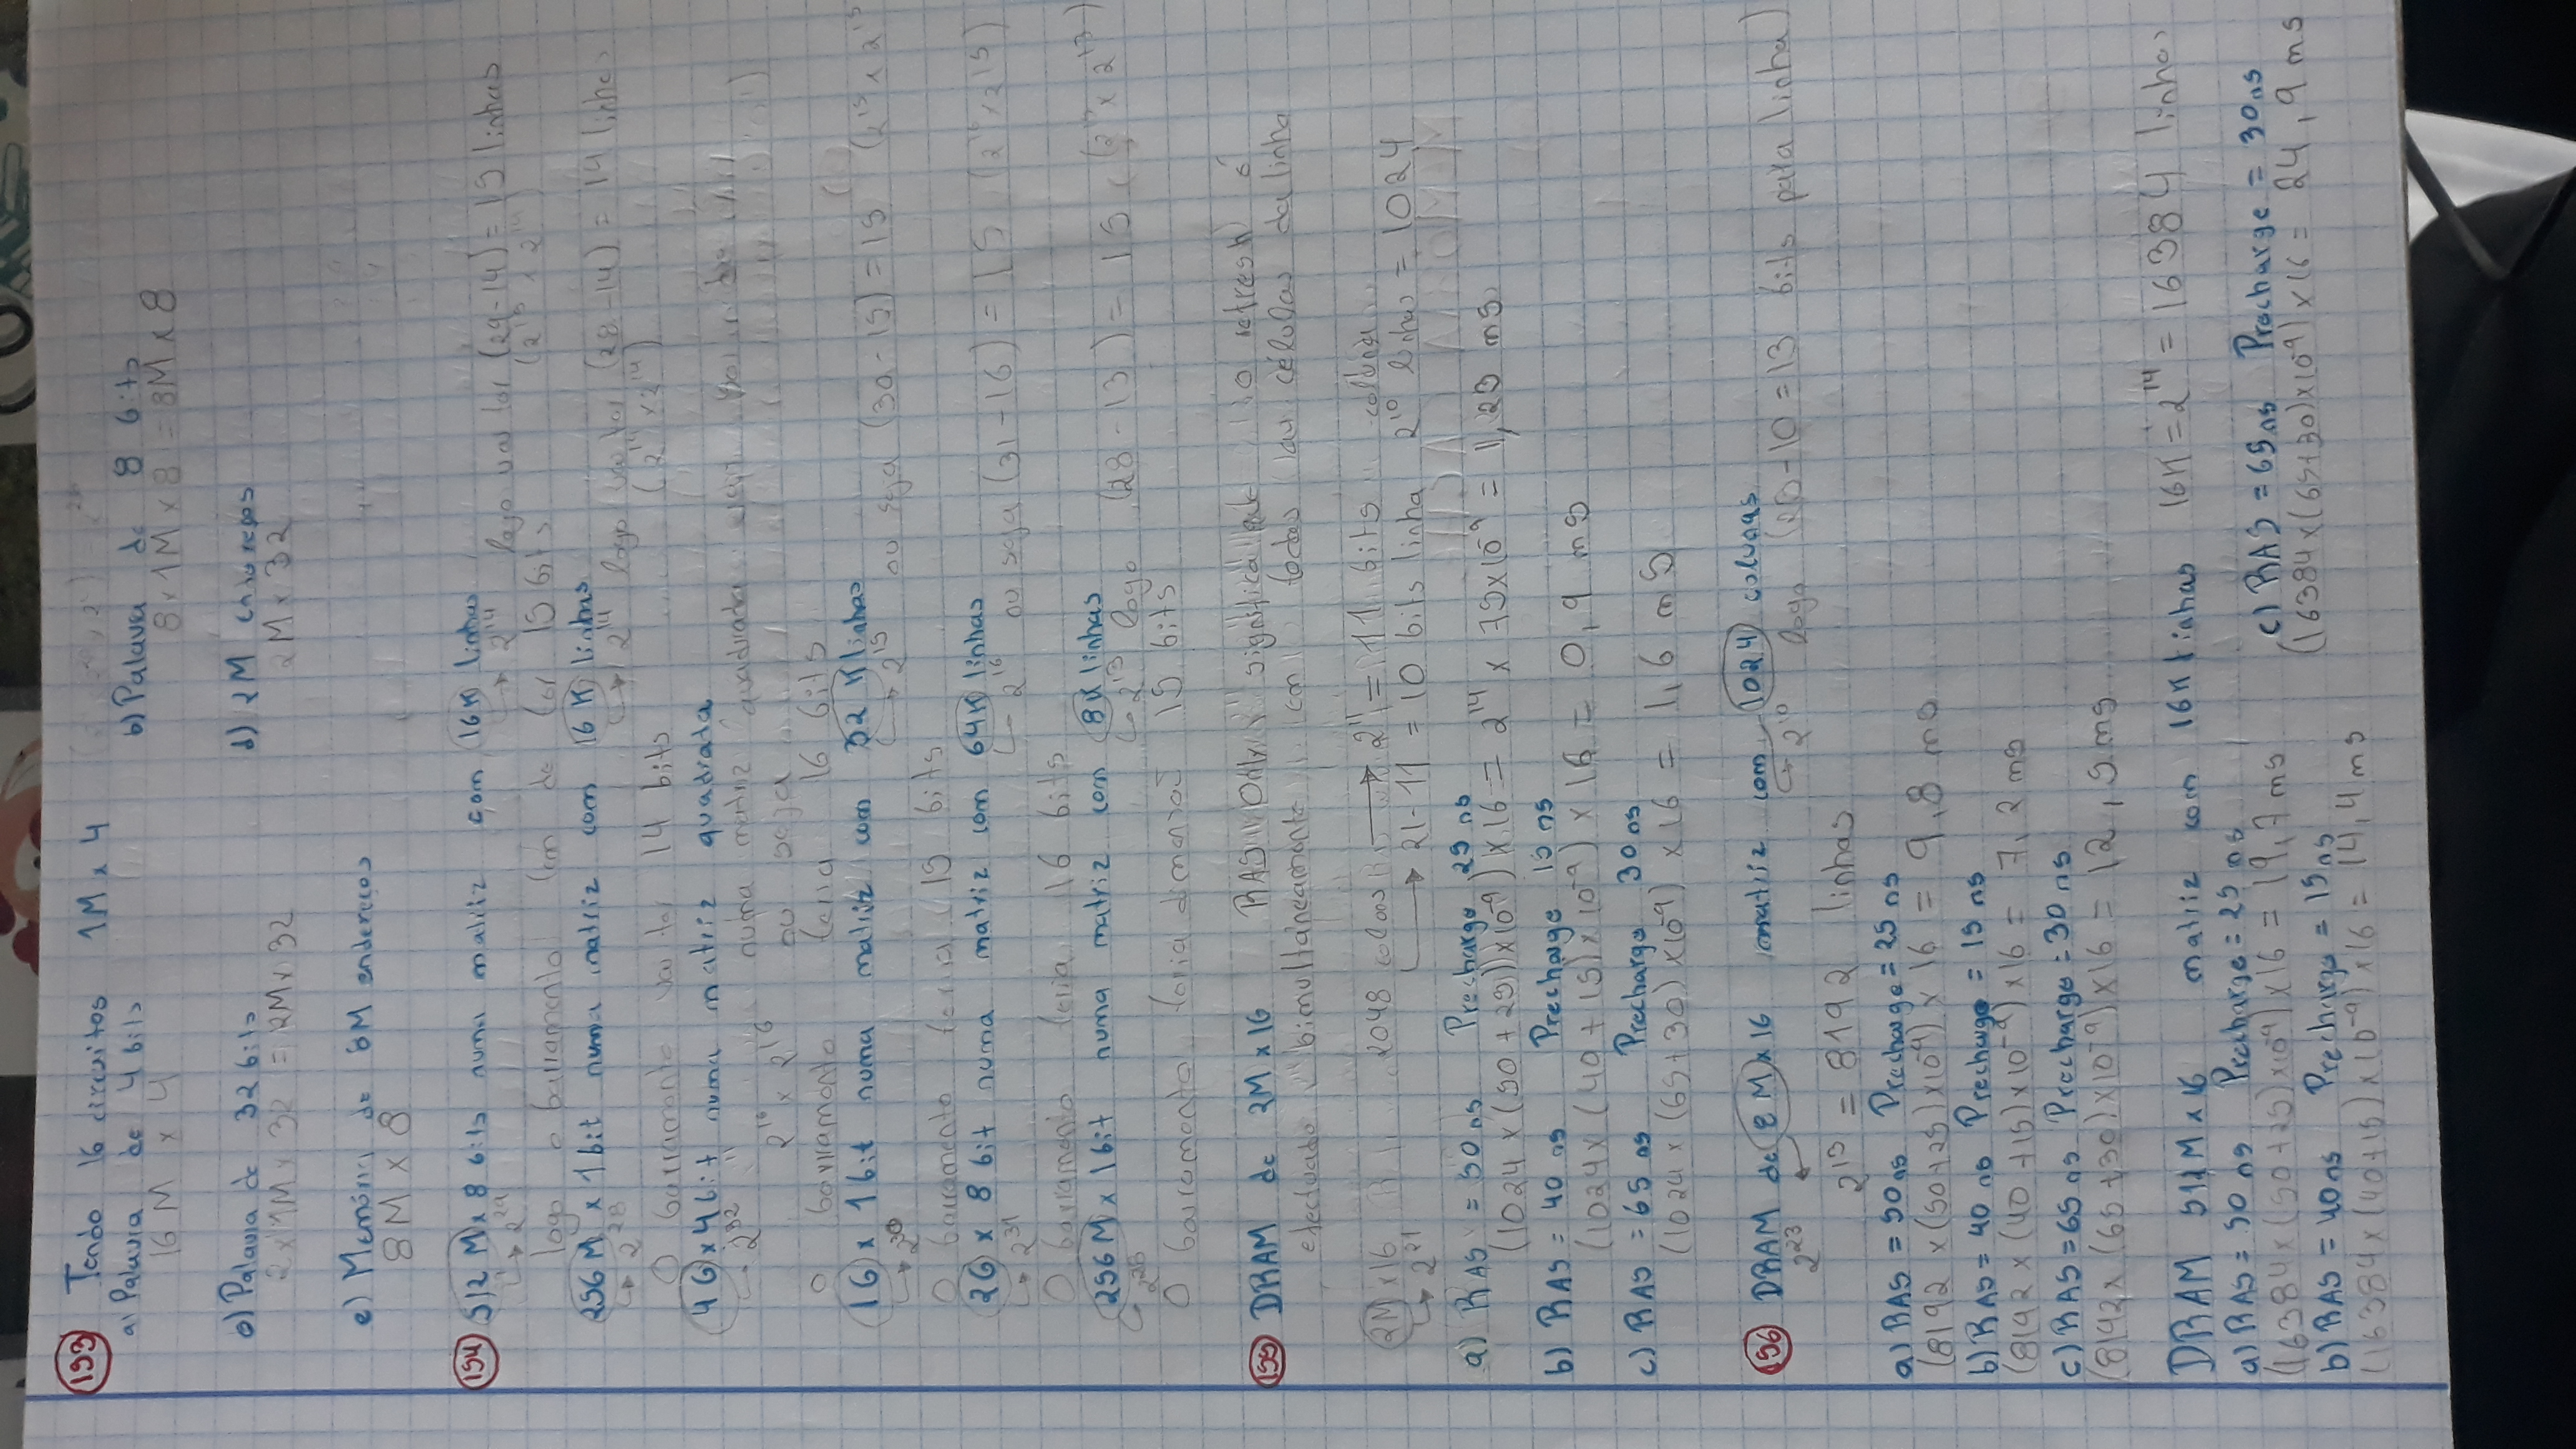 193 Tendo 16 circuitos 1M x 4
a) Palavra de 4 bits
b) Palavra de 8 bits
16 M x 4
8 x 1M x 8 = 8M x 8
c) Palavra de 32 bits
d) 2M endereços
2 x 1M x 32 = 2M x 32
2M x 32
e) Memória de 8M endereços
8M x 8
194 512 M x 8 bits numa matriz com 16K linhas
→ 2^29 → 2^14 logo vai ter (29-14) = 15 linhas
(2^15 x 2^14)
logo o barramento tem de ter 15 bits
256 M x 1 bit numa matriz com 16 K linhas
→ 2^28 → 2^14 logo vai ter (28-14) = 14 linhas
(2^14 x 2^14)
O barramento vai ter 14 bits
4G x 4 bit numa matriz quadrada
→ 2^32 numa matriz quadrada
2^16 x 2^16 ou seja
O barramento teria 16 bits
1G x 1 bit numa matriz com 32 K linhas
→ 2^30 → 2^15 ou seja (30-15) = 15 (2^15 x 2^15
O barramento teria 15 bits
2G x 8 bit numa matriz com 64K linhas
→ 2^31 → 2^16 ou seja (31-16) = 15 (2^16 x 2^15)
O barramento teria 16 bits
256 M x 1 bit numa matriz com 8K linhas
→ 2^28 → 2^13 logo (28-13) = 15 (2^15 x 2^13)
O barramento teria dimensão 15 bits
195 DRAM de 2M x 16 RAS Only significa que o refresh é
efectuado simultaneamente em todas as células da linha
2M x 16 2048 → 2^11 = 11 bits coluna
→ 2^21 → 21-11 = 10 bits linha 2^10 linhas = 1024
a) RAS = 50 ns Precharge 25 ns
(1024 x (50 + 25)) x 10^-9) x 16 = 2^14 x 75 x 10^-9 = 1,23 ms
b) RAS = 40 ns Precharge 15 ns
(1024 x (40 + 15) x 10^-9) x 16 = 0,9 ms
c) RAS = 65 ns Precharge 30 ns
(1024 x (65 + 30) x 10^-9) x 16 = 1,6 ms
196 DRAM de 8M x 16 matriz com 1024 colunas
2^23 → 2^10 logo (23-10 = 13 bits para linha)
2^13 = 8192 linhas
a) RAS = 50 ns Precharge = 25 ns
(8192 x (50+25) x 10^-9) x 16 = 9,8 ms
b) RAS = 40 ns Precharge = 15 ns
(8192 x (40 + 15) x 10^-9) x 16 = 7,2 ms
c) RAS = 65 ns Precharge = 30 ns
(8192 x (65 + 30) x 10^-9) x 16 = 12,5 ms
DRAM 512M x 16 matriz com 16K linhas 16K = 2^14 = 16384 linhas
a) RAS = 50 ns Precharge = 25 ns
(16384 x (50 + 25) x 10^-9) x 16 = 19,7 ms
c) RAS = 65 ns Precharge = 30 ns
(16384 x (65+30) x 10^-9) x 16 = 24,9 ms
b) RAS = 40 ns Precharge = 15 ns
(16384 x (40+15) x 10^-9) x 16 = 14,4 ms